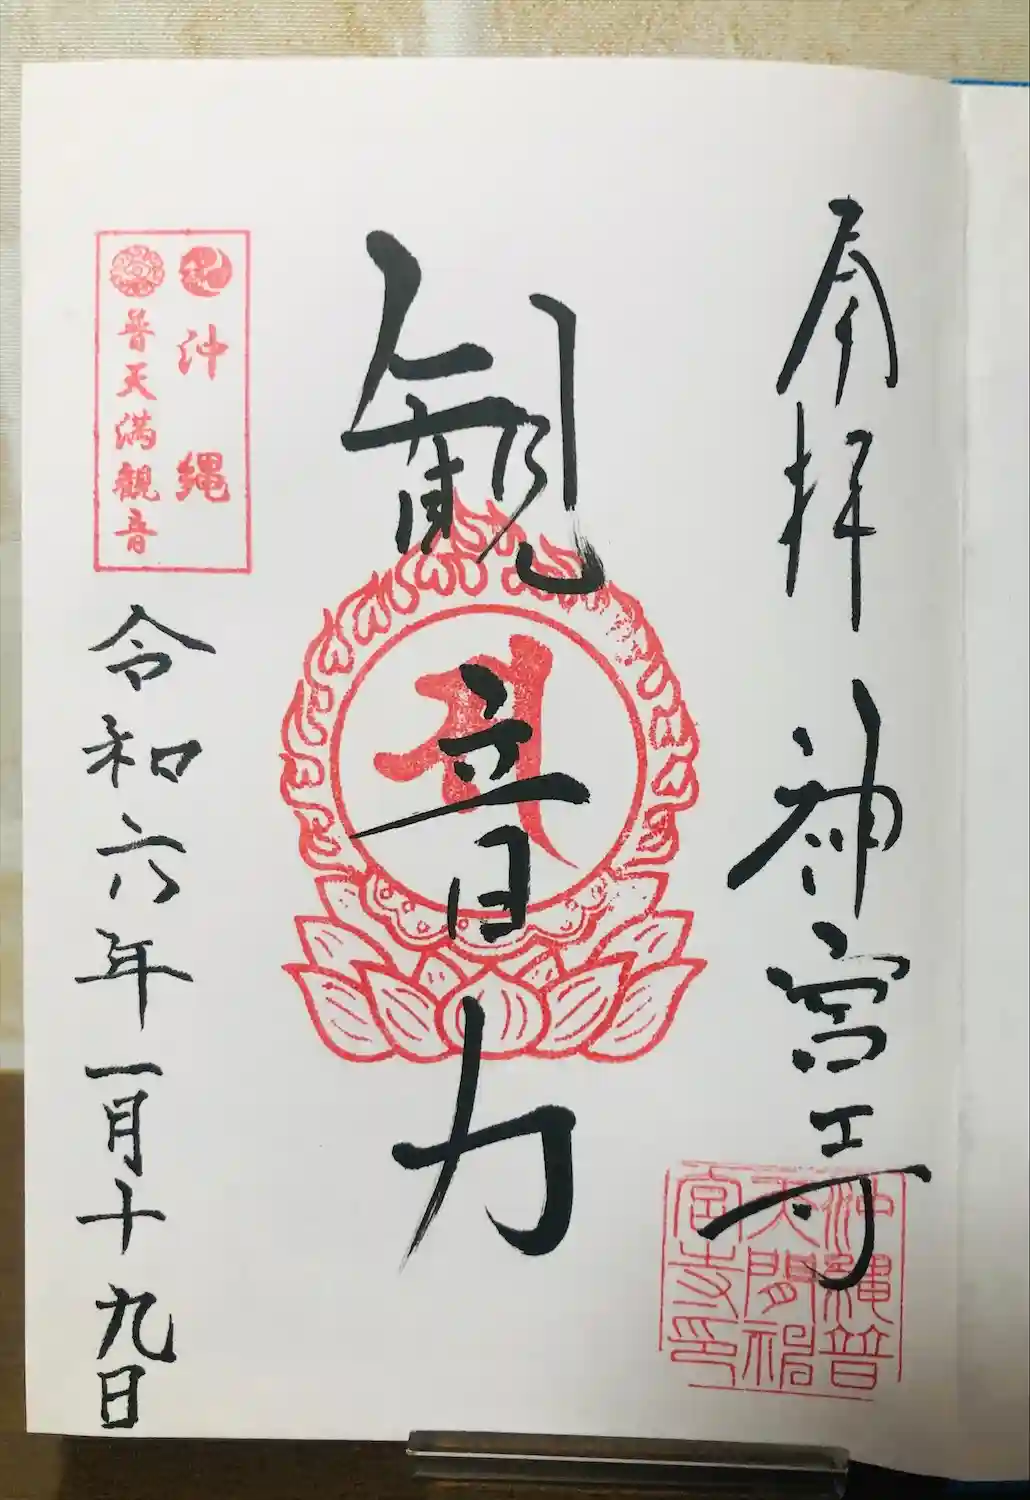 奉拝 神宮寺
沖縄普
天間神
宮寺印
観音力
沖縄
普天満観音
令和六年一月十九日